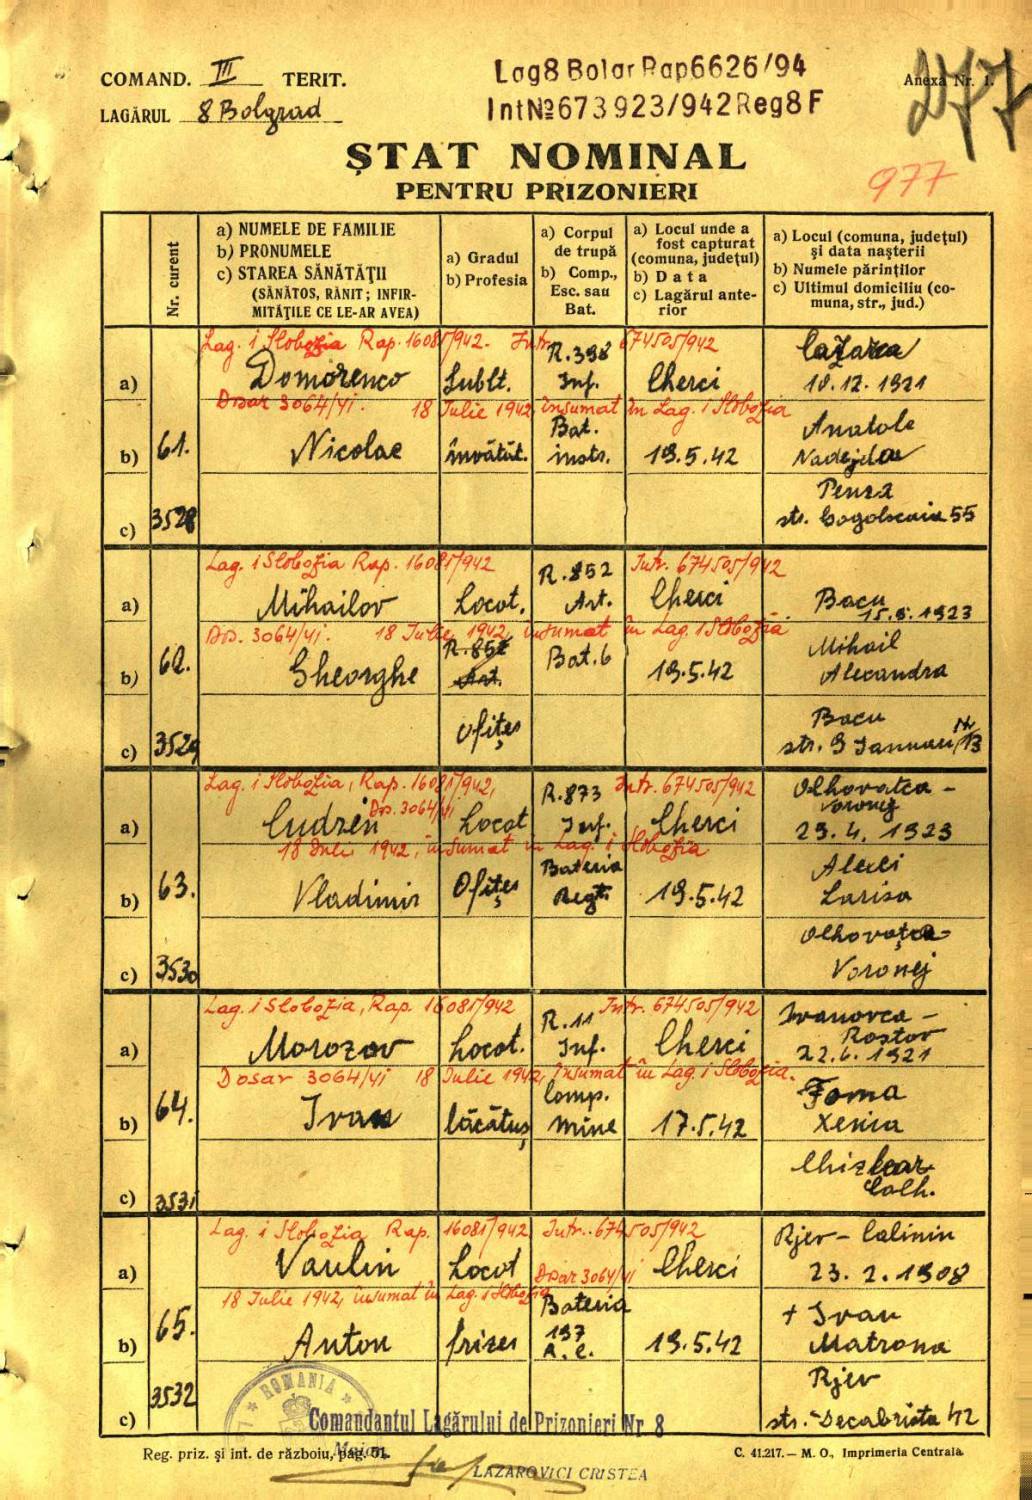 COMAND. III TERIT.
LAGĂRUL 8 Bolgrad
Lag8 Bolgr Rap6626/94
Int№673923/942Reg8F
Anexa Nr. 1.
277
977
ȘTAT NOMINAL
PENTRU PRIZONIERI
Nr. curent
a) NUMELE DE FAMILIE
b) PRONUMELE
c) STAREA SĂNĂTĂȚII
(SĂNĂTOS, RĂNIT; INFIR-
MITĂȚILE CE LE-AR AVEA)
a) Gradul
b) Profesia
a) Corpul
de trupă
b) Comp.,
Esc. sau
Bat.
a) Locul unde a
fost capturat
(comuna, județul)
b) Data
c) Lagărul ante-
rior
a) Locul (comuna, județul)
și data nașterii
b) Numele părinților
c) Ultimul domiciliu (co-
muna, str., jud.)
Lag. 1 Slobozia Rap. 16081/942. Intr. 674505/942
a) Domorenco Sublt. R.398 Inf. Cherci
10.12.1921
Dosar 3064/41. 18 Iulie 1942, însumat în Lag. 1 Slobozia
61. b) Nicolae învătăt. Bat. instr. 19.5.42 Anatole
Nadejda
c) 3528 Penza
str. Gogolscaia 55
Lag. 1 Slobozia Rap. 16081/942 Intr. 674505/942
a) Mihailov Locot. R.852 Art. Cherci Bacu
15.8.1923
Dos. 3064/41. 18 Iulie 1942, însumat în Lag. 1 Slobozia
62. b) Gheorghe R.852 Art. Bat. 6 19.5.42 Mihail
Alecandra
c) 3529 Ofițer Bacu
str. 9 Ianuari Nr. 13
Lag. 1 Slobozia, Rap. 16081/942, Intr. 674505/942
Dos. 3064/41
a) Cudrin Locot R.873 Inf. Cherci Olhovatca -
Voronej
29.4.1923
18 Iulie 1942, însumat în Lag. 1 Slobozia
63. b) Vladimir Ofițer Bateria Regt. 19.5.42 Alexei
Larisa
c) 3530 Olhovațca
Voronej
Lag. 1 Slobozia, Rap. 16081/942 Intr. 674505/942
a) Morozov Locot. R.11 Inf. Cherci Ivanovca -
Rostov
22.6.1921
Dosar 3064/41 18 Iulie 1942, însumat în Lag. 1 Slobozia.
64. b) Ivan lăcătuș Comp. mine 17.5.42 Foma
Xenia
c) 3531
Colh.
Lag. 1 Slobozia Rap. 16081/942 Intr. 674505/942
a) Vaulin Locot Dosar 3064/41 Cherci Rjev - Calinin
23.2.1908
18 Iulie 1942, însumat în Lag. 1 Slobozia
65. b) Anton frizer Bateria 197 A.C. 19.5.42 + Ivan
Matrona
c) 3532 Rjev
str. Decabrista 42
ROMANIA
Comandantul Lagărului de Prizonieri Nr. 8
Maior
Reg. priz. și int. de războiu, pag. 51.
C. 41.217. — M. O., Imprimeria Centrala.
LAZAROVICI CRISTEA